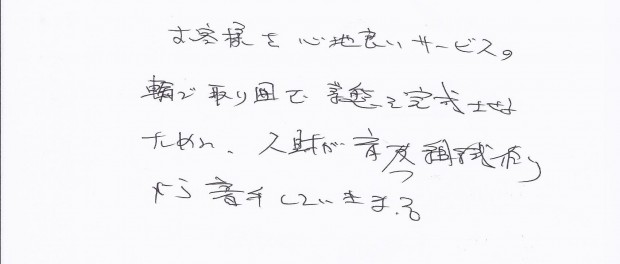 お客様を心地良いサービスの
輪で取り囲む業態を完成させる
ために、人財が育つ組織作り
から着手していきます。